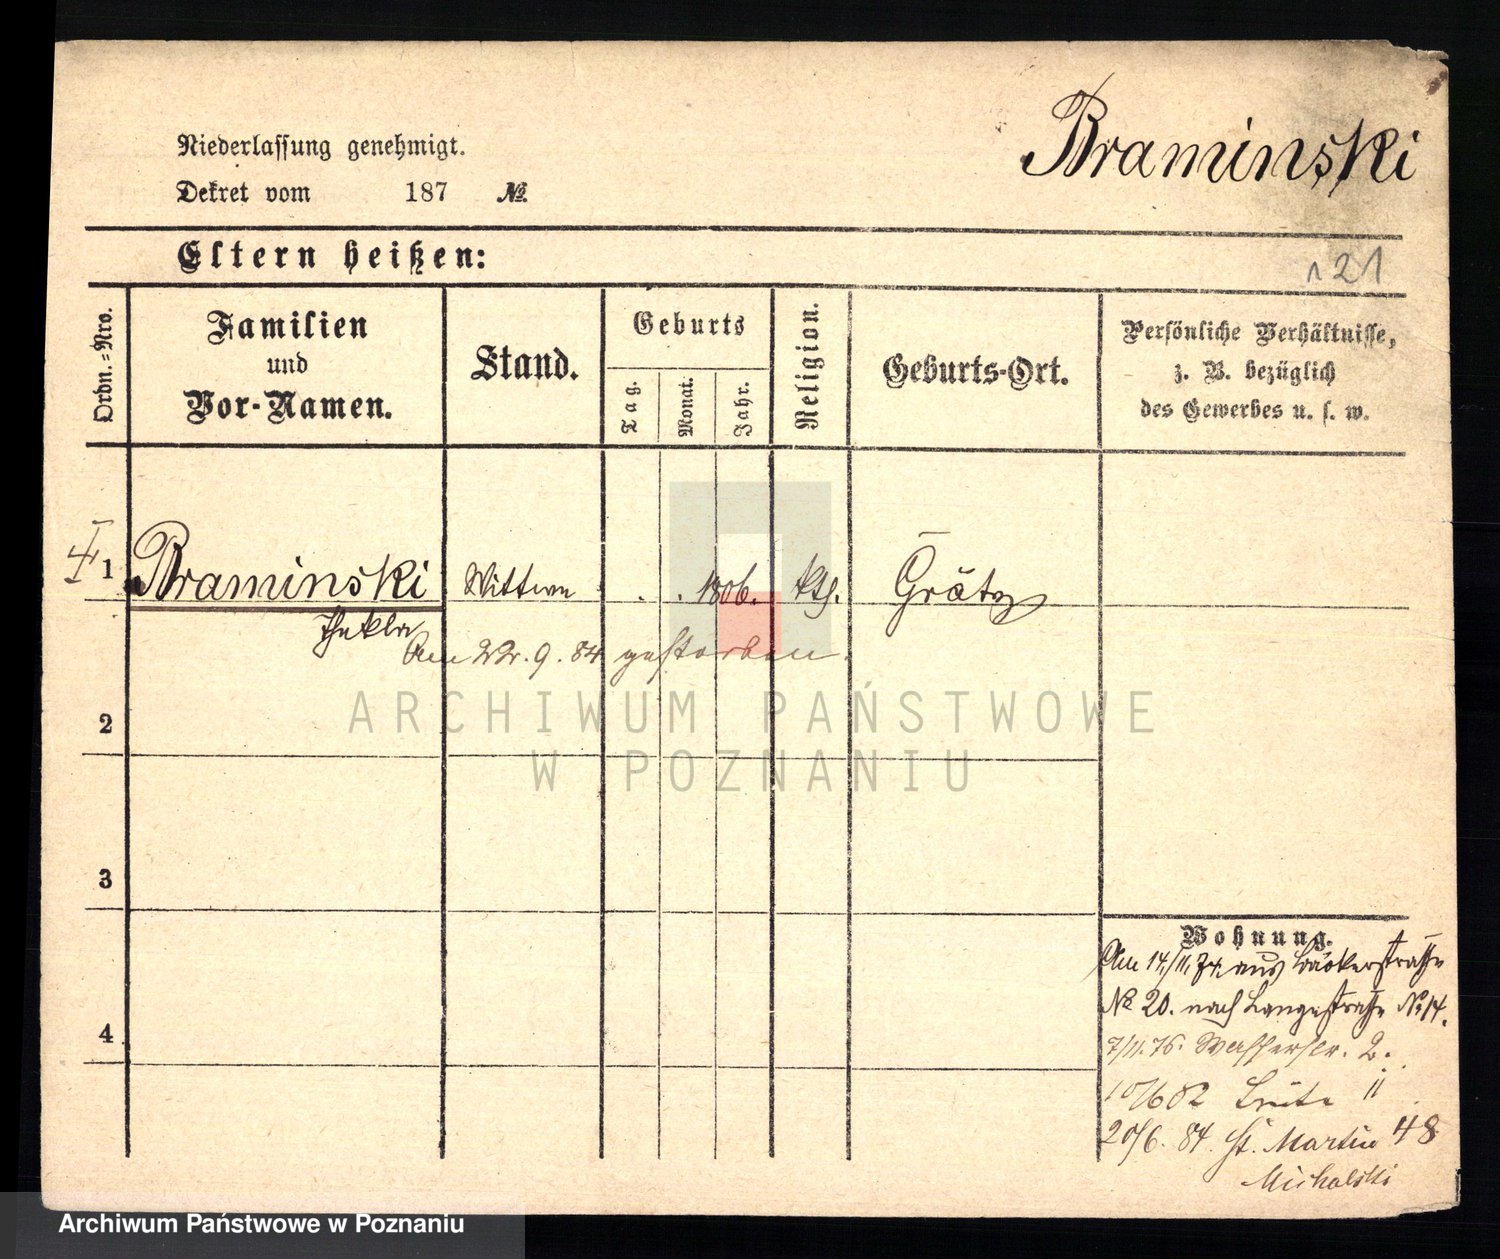 Braminski
Niederlassung genehmigt.
Dekret vom 187 №
Eltern heißen:
121
Ordn.-Nro.
Familien
und
Vor-Namen.
Stand.
Geburts
Tag.
Monat.
Jahr.
Religion.
Geburts-Ort.
Persönliche Verhältnisse,
z. B. bezüglich
des Gewerbes u. s. w.
1 Braminski Wittwe . . 1806. kth. Grätz
Thekla
Am 22. 9. 84 gestorben.
2
3
4
Wohnung.
Am 14/11. 74. aus Bäckerstraße
№ 20. nach Langestraße № 14.
7/11. 76. Wasserstr. 2.
10/6 82 11
20/6. 84. St. Martin 48
Michalski
ARCHIWUM PAŃSTWOWE
W POZNANIU
Archiwum Państwowe w Poznaniu